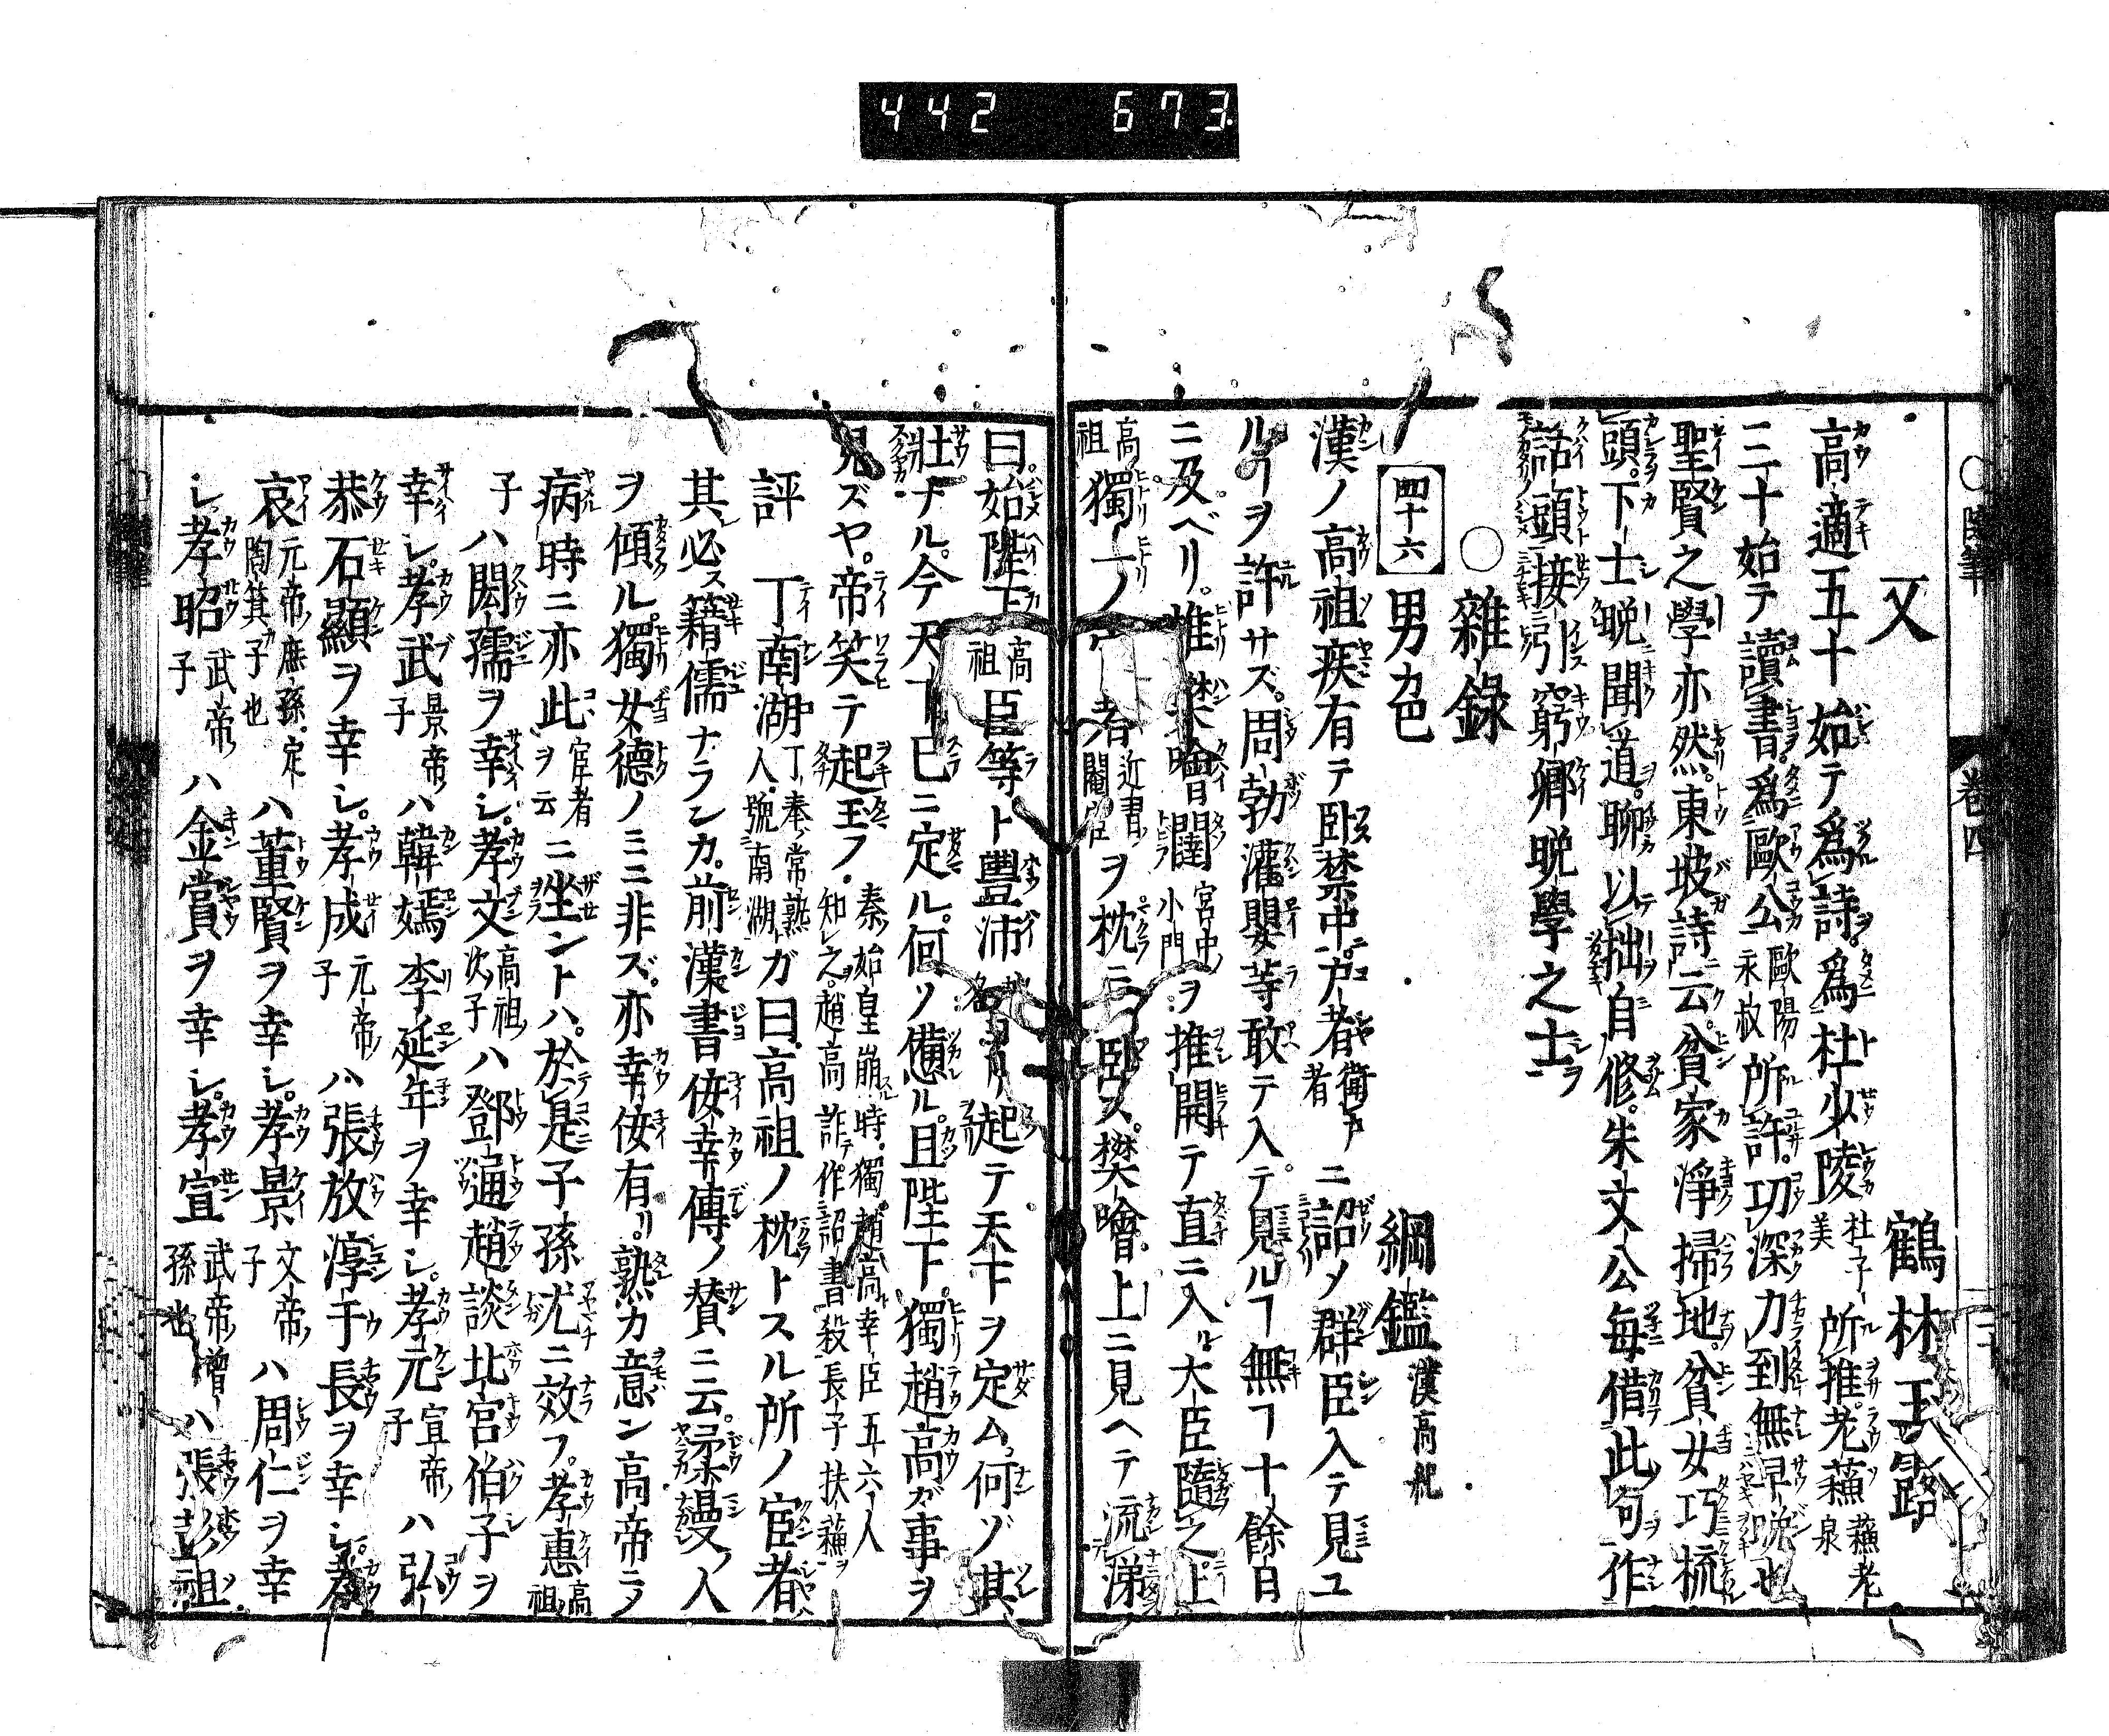 442 673
卷四
又 鶴林玉露
高適五十始テ爲詩爲杜少陵杜子美所推老蘓蘓老泉
三十始テ讀書爲歐公歐陽永叔所許功深力到無早晩也
聖賢之學亦然東坡詩云貧家淨掃地貧女巧梳
頭下士晩聞道聊以拙自修朱文公每借此句作
話頭接引窮鄉晩學之士
○雜錄
四十六 男色 綱鑑漢高紀
漢ノ高祖疾有テ臥禁中戸者衛戸者ニ詔メ群臣入テ見ユ
ルヿヲ許サズ周勃灌嬰等敢テ入テ見ルヿ無ヿ十餘日
ニ及ベリ惟樊噲闥宮中ノ小門ヲ推開テ直ニ入ル大臣隨之上
高祖獨一ノ者近書ノ閹官ヲ枕ニ臥ス樊噲上ニ見ヘテ流涕
曰始陛下高祖臣等ト豐沛ヨリ起テ天下ヲ定ム何ゾ其
壯ナル今天下已ニ定ル何ソ憊ル且陛下獨趙高ガ事ヲ
見ズヤ帝笑テ起玉フ秦ノ始皇崩スル時獨趙高ト幸臣五六人知之趙高詐テ作詔書殺長子扶蘓ヲ
評 丁南湖丁奉常熟人號南湖ガ曰高祖ノ枕トスル所ノ宦者
其必ス籍儒ナランカ前漢書佞幸傳ノ賛ニ云柔曼ノ人
ヲ傾ル獨女德ノミニ非ズ亦幸佞有リ熟カ意ン高帝ニノ
病時ニ亦此宦者ヲ云ニ坐ントハ於是子孫尤ニ效フ孝惠高祖
子ハ閎孺ヲ幸シ孝文高祖次子ハ鄧通趙談北宮伯子ヲ
幸シ孝武景帝子ハ韓嫣李延年ヲ幸シ孝元宣帝子ハ弘
恭石顯ヲ幸シ孝成元帝子ハ張放淳于長ヲ幸シ孝
哀元帝ノ庶孫定陶箕子也ハ董賢ヲ幸シ孝景文帝子ハ周仁ヲ幸
シ孝昭武帝子ハ金賞ヲ幸シ孝宣武帝ノ曾孫也ハ張彭祖